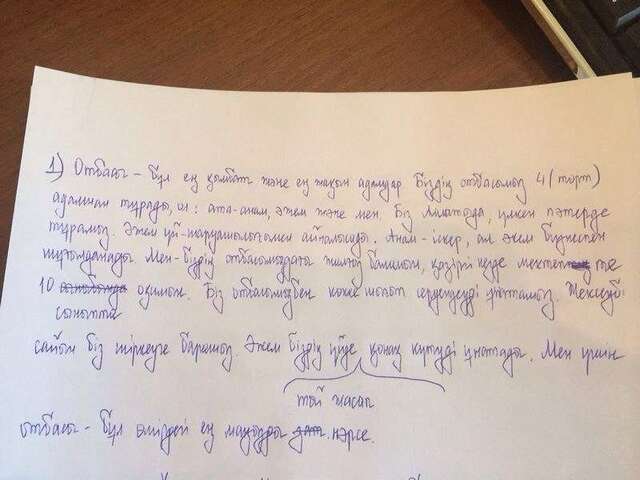 1) Отбасы - бұл ең қымбат және ең жақын адамдар Біздің отбасымыз 4 (төрт)
адамнан тұрады, ол: ата-анам, әжем және мен. Біз Алматода, үлкен пәтерде
тұрамыз. Әжем үй-шаруашылығымен айналысады. Анам - іскер, ал әкем бизнеспен
шұғылданады Мен - біздің отбасымыздағы жалғыз баламын, қазіргі кезде мектепте
10 сыныпта оқимын. Біз отбасымызбен көже серуендеуді ұнатамыз. Жексенбі
сайын біз шіркеуге барамыз. Әжем біздің үйде қонақ күтуді ұнатады. Мен үшін
той жасап
отбасы - бұл өмірдегі ең маңызды нәрсе.